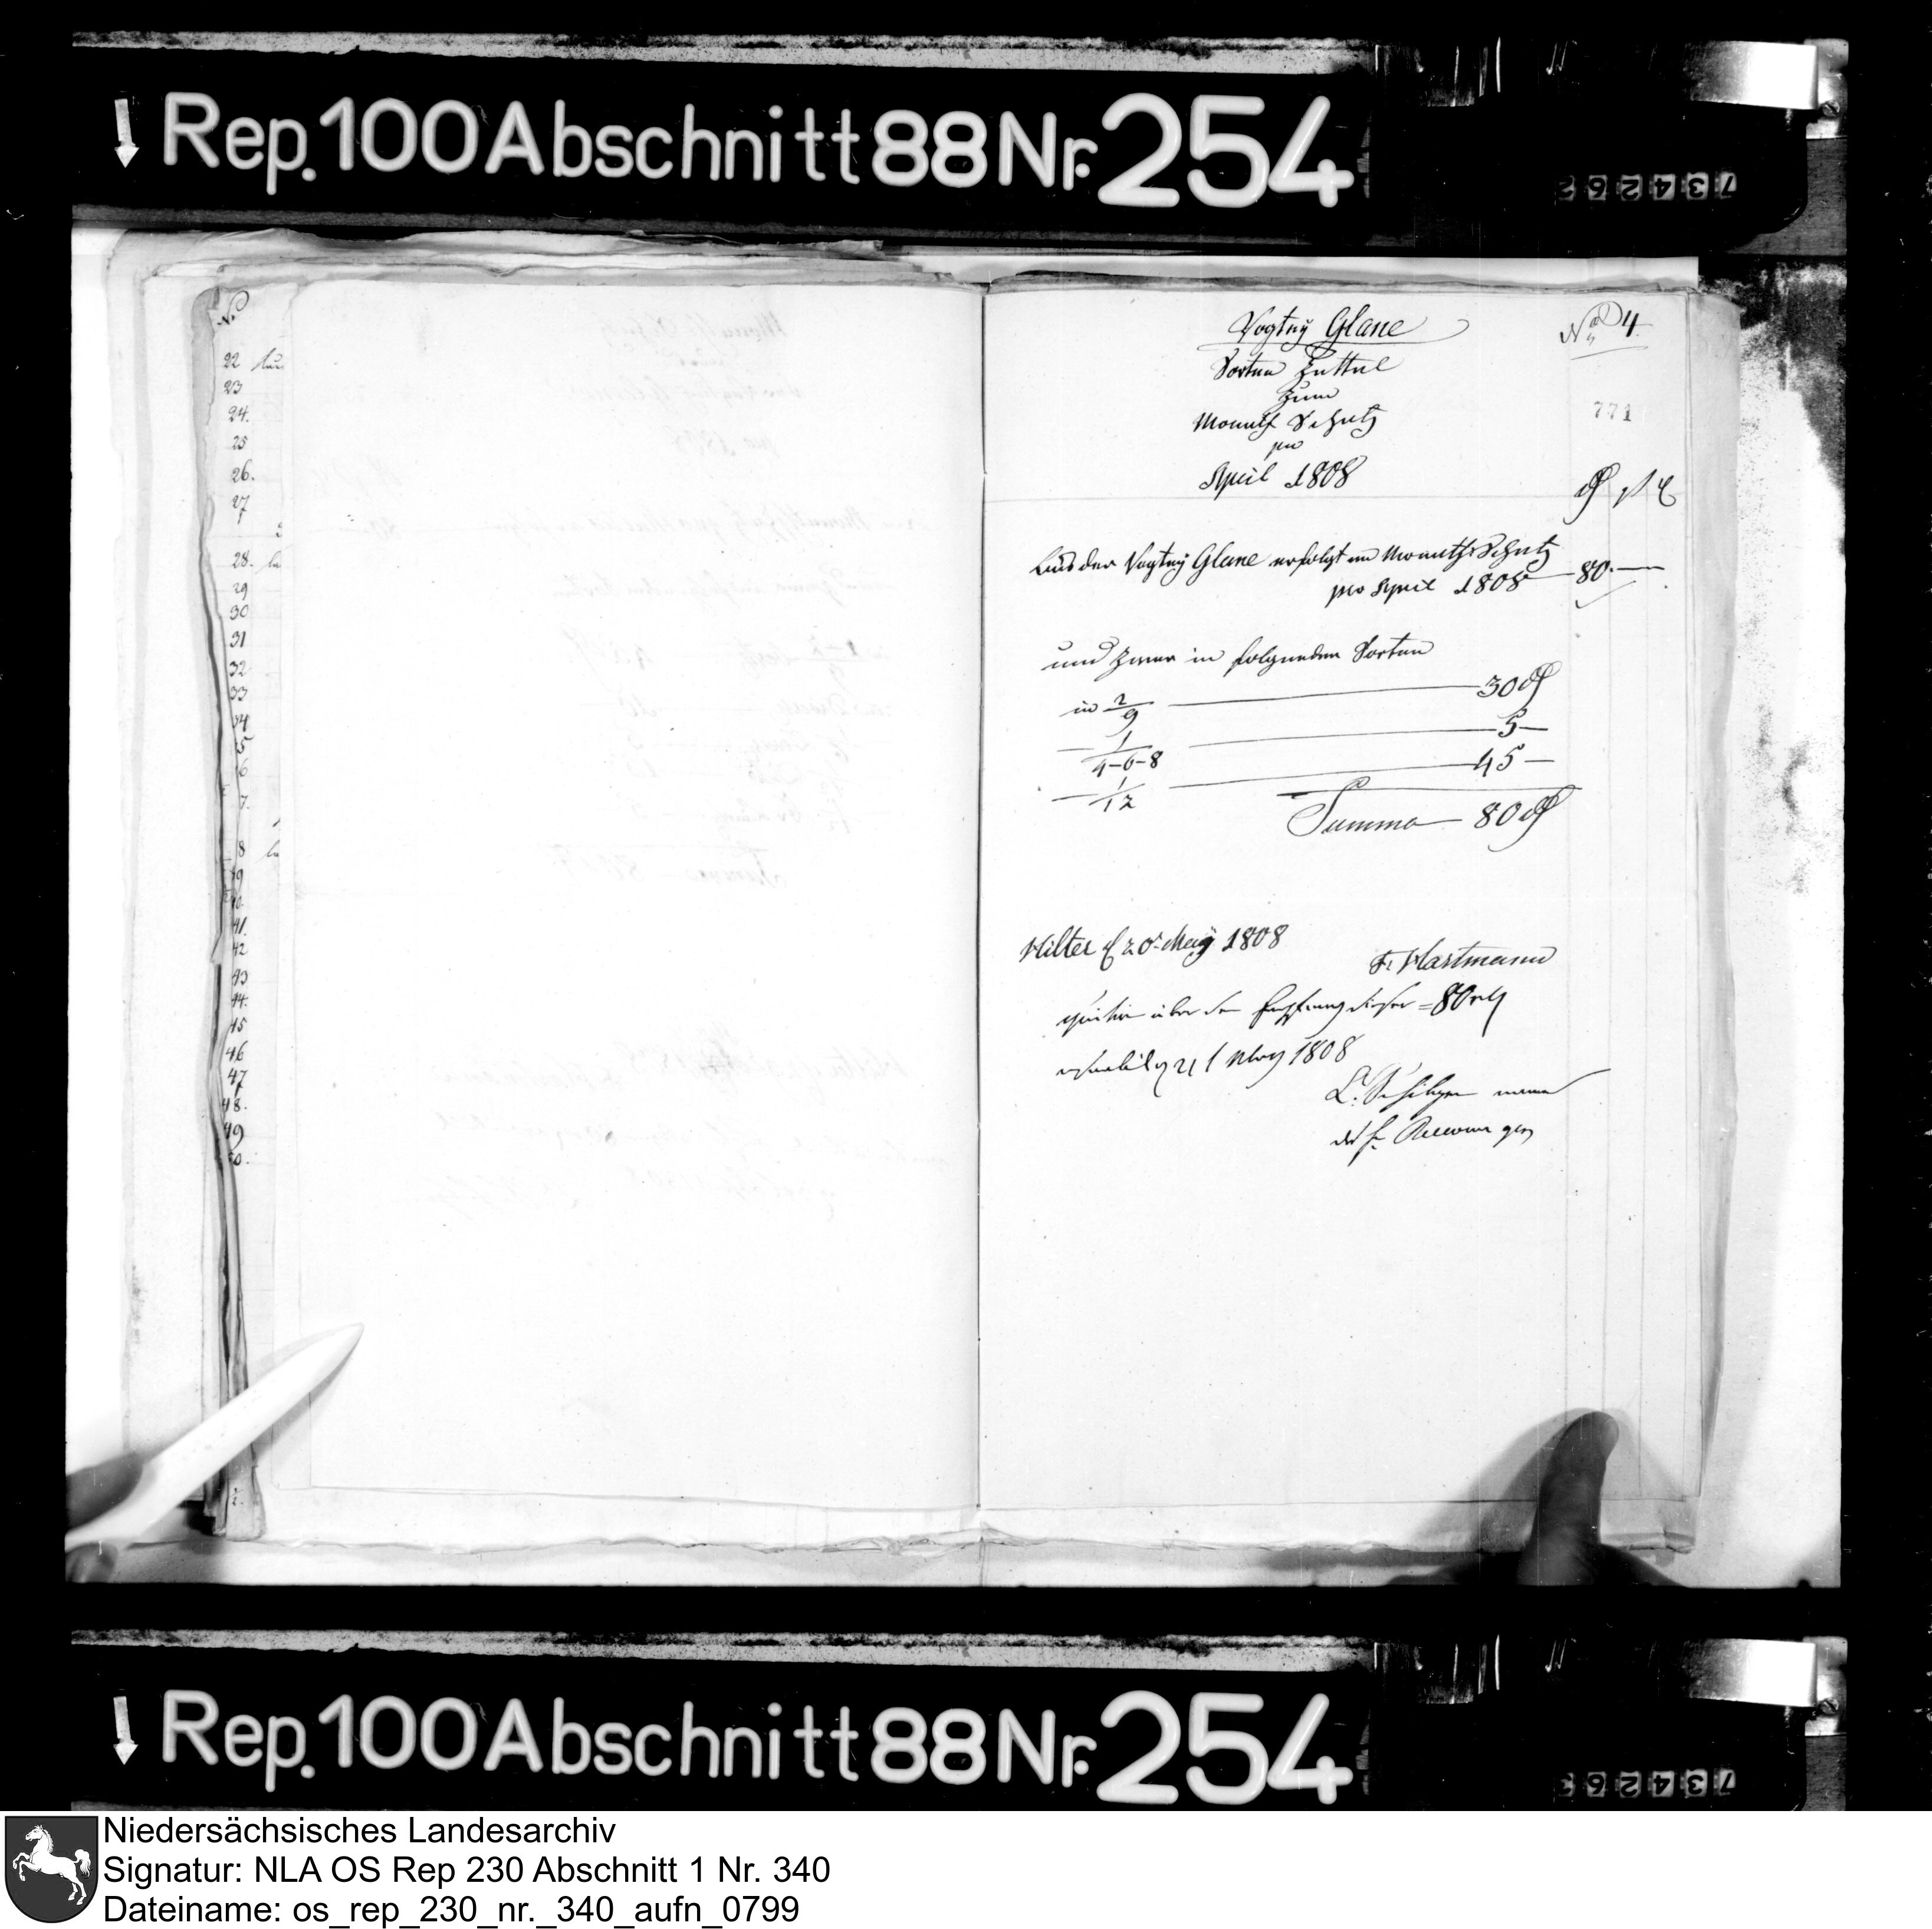 Rep. 100 Abschnitt 88 Nr. 254
734262
No 4
Vogtey Glane
Sorten Zettul
zum
Monath Schatz
pro
April 1808
771
Aus der Vogtey Glane erfolgt an Monath Schatz
pro April 1808 — 80. —
und zwar in folgenden Sorten
in 2/9 — 30
— 1/4-6-8 — 5 —
— 1/12 — 45 —
Summa — 80
Hilter d 20t May 1808
F. Hartmann
über den Empfang dieser = 80
21 t May 1808
N.
22
23
24.
25
26.
27
28.
29
30
31
32
33
34
5
6
7.
8
39
40
41.
42
43
44.
45
46
47
48.
49
50.
Rep. 100 Abschnitt 88 Nr. 254
734263
Niedersächsisches Landesarchiv
Signatur: NLA OS Rep 230 Abschnitt 1 Nr. 340
Dateiname: os_rep_230_nr._340_aufn_0799